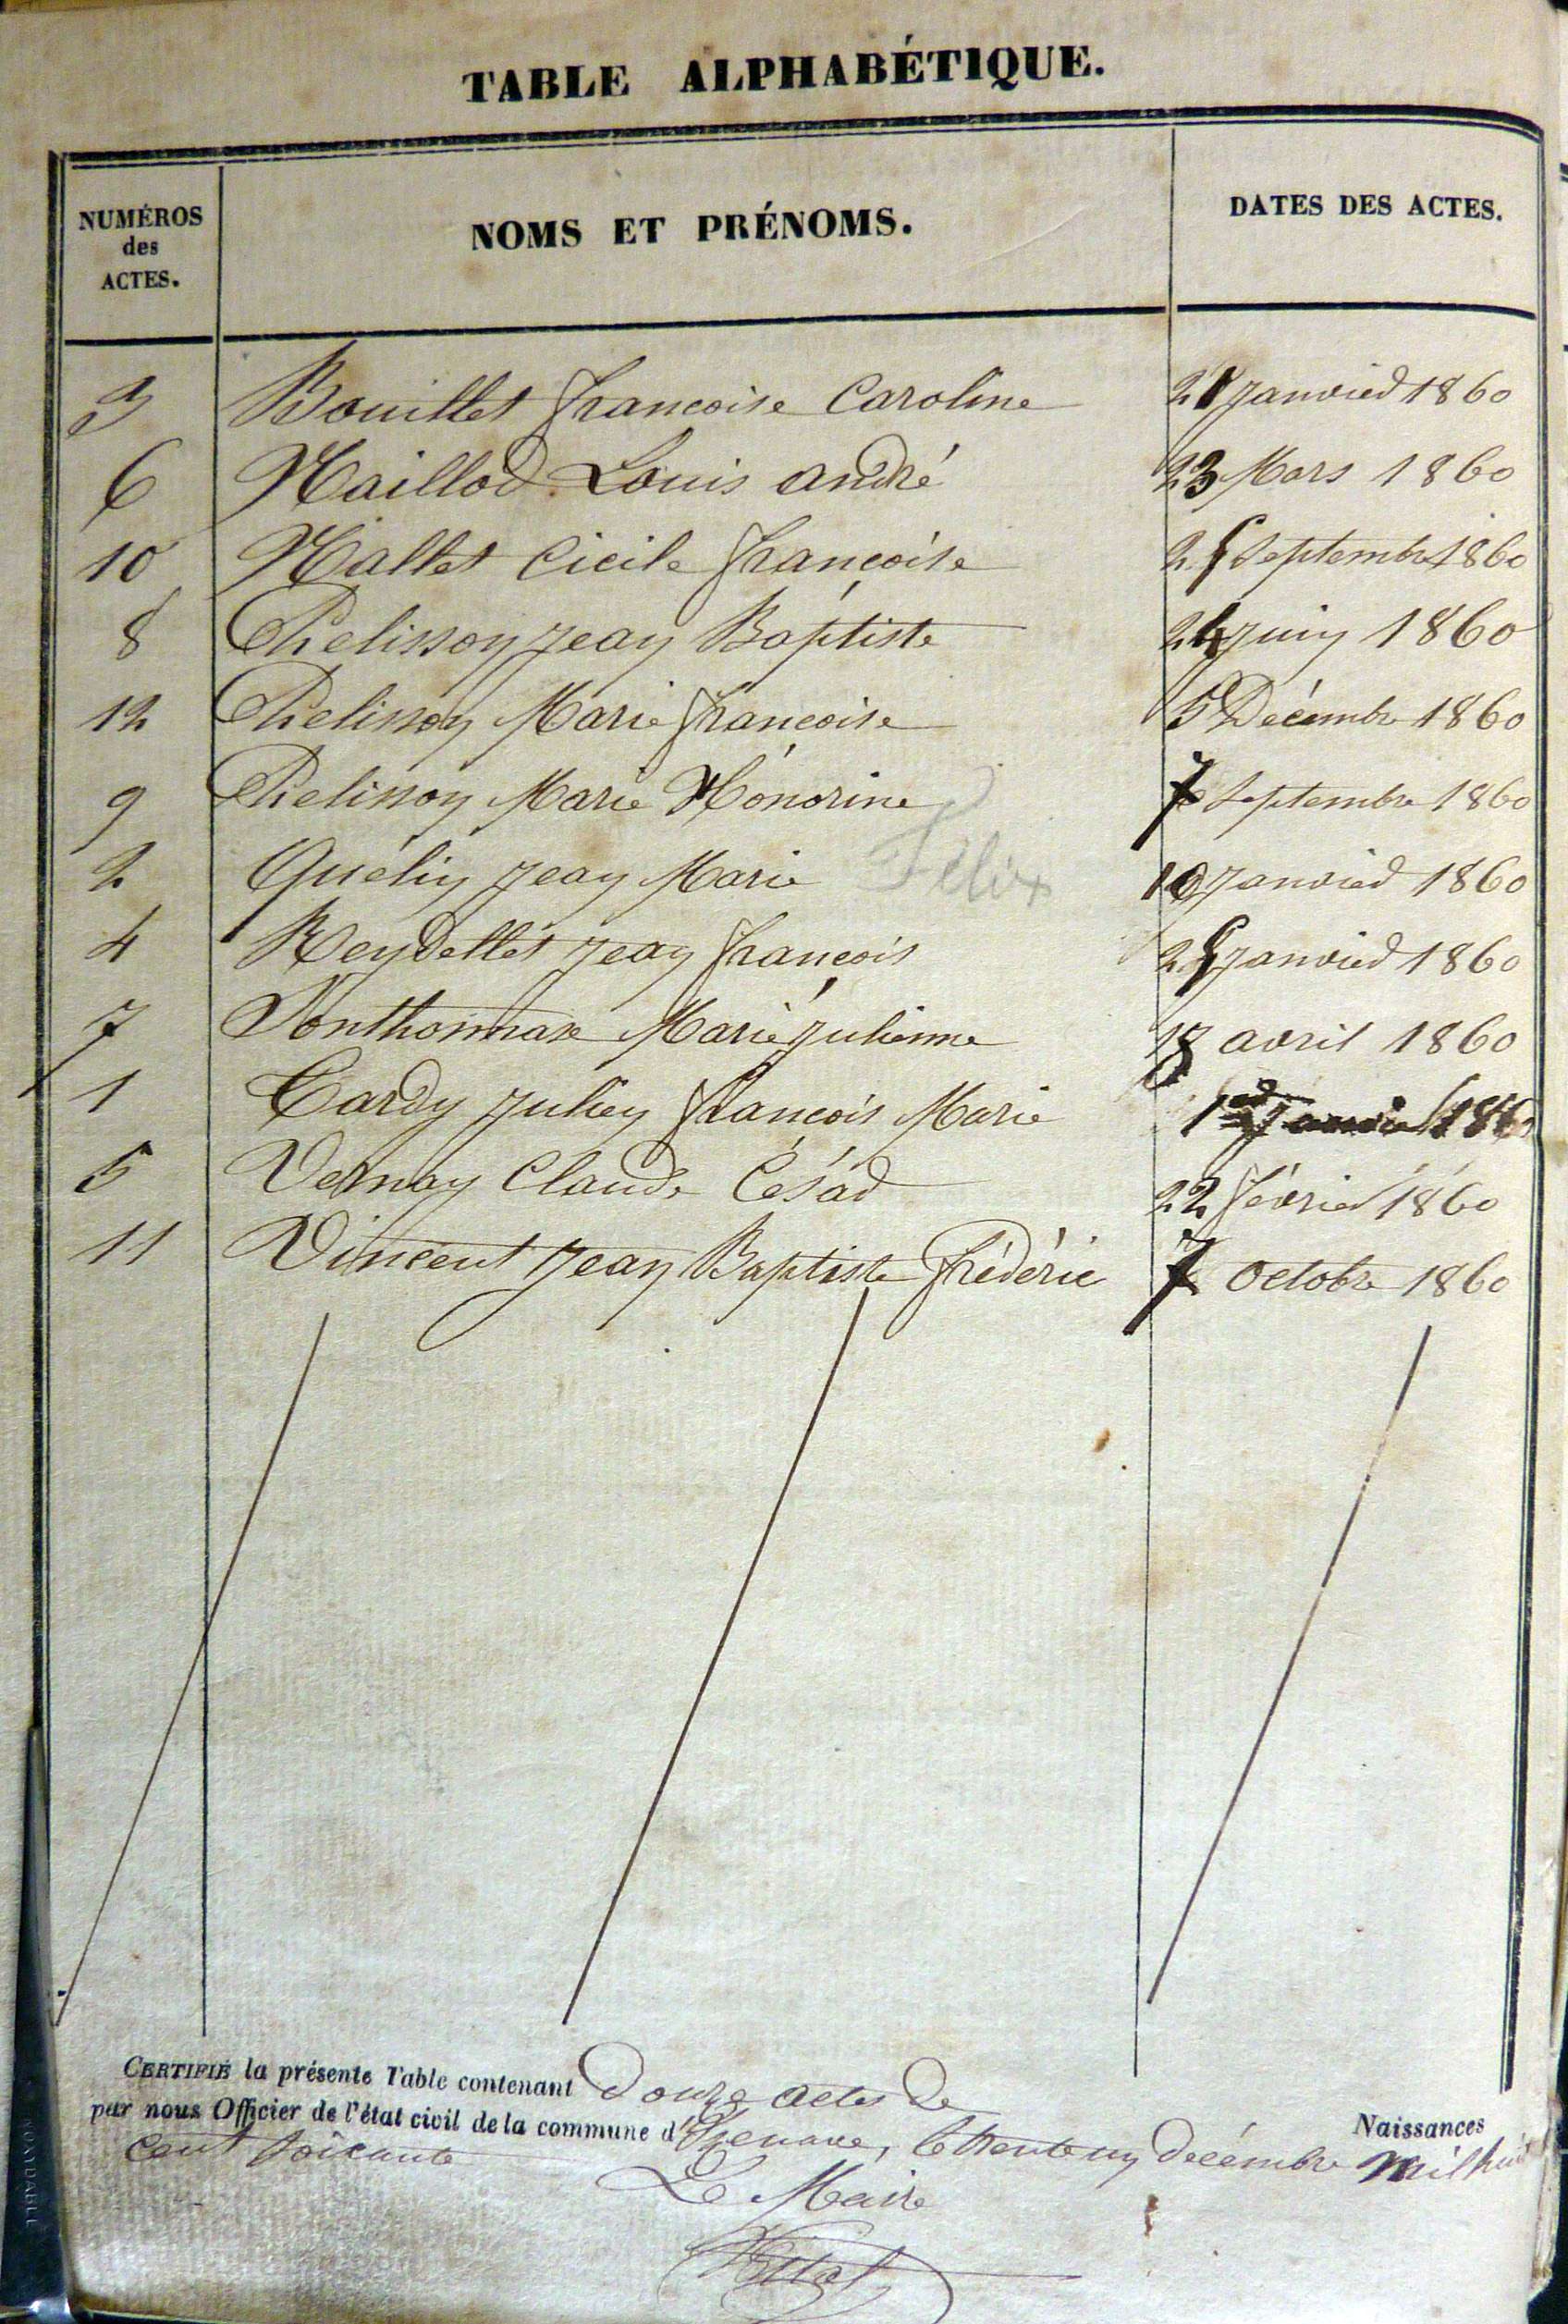 TABLE ALPHABÉTIQUE.
NUMÉROS
des
ACTES.
NOMS ET PRÉNOMS.
DATES DES ACTES.
3 Bouillet françoise Caroline 21 Janvier 1860
6 Maillod Louis andré 23 Mars 1860
10 Mallet Cicile françoise 2 Septembre 1860
8 Pelisson Jean Baptiste 24 Juin 1860
12 Pelisson Marie françoise 5 Décembre 1860
9 Pelisson Marie Honorine 7 Septembre 1860
2 Quélin Jean Marie Félix 10 Janvier 1860
4 Reydellet Jean françois 2 Janvier 1860
7 Sonthonnax Marie Julienne avril 1860
1 Tardy Julien françois Marie 1er Janvier 1860
5 Vernay Claude César 22 février 1860
11 Vincent Jean Baptiste frédéric 7 Octobre 1860
CERTIFIÉ la présente Table contenant Douze actes de Naissances
par nous Officier de l'état civil de la commune d' le trente un Décembre mil huit
cent soixante
Le Maire